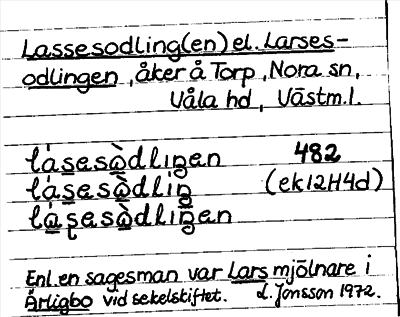 Lassesodling(en) el. Larses-
odlingen, åker å Torp, Nora sn,
Våla hd, Västm.l.
låsesòdlingen 482
låsesòdlin̠ (ek12H4d)
låsesòdlin̠en
Enl. en sagesman var Lars mjölnare i
Ärligbo vid sekelskiftet. L. Jonsson 1972.